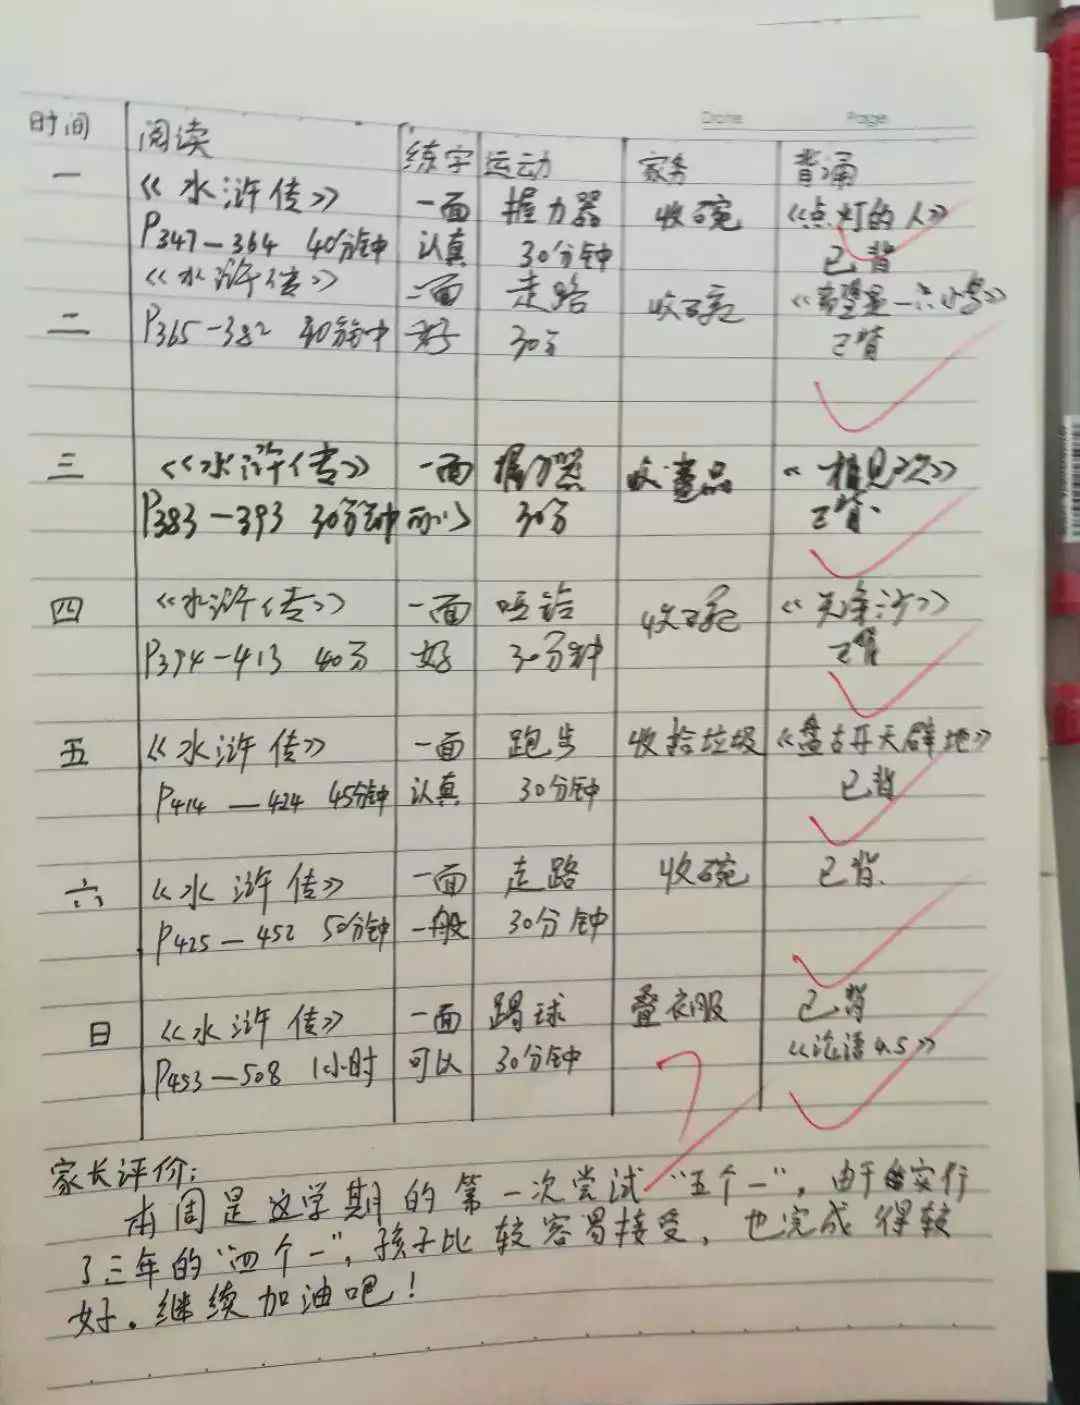 Date Page
时间 阅读 练字 运动 家务 背诵
一 《水浒传》 一面 握力器 收碗 《点灯的人》
P347—364 40分钟 认真 30分钟 已背
《水浒传》 一面 走路 收碗 《希望是一点小雪》
二 P365-382 40分钟 好 30分 已背
三 《水浒传》 一面 握力器 收 《相见欢》
P383—393 30分钟 可以 30分 已背
四 《水浒传》 一面 哑铃 收碗 《天净沙》
P394-413 40分 好 30分钟 已背
五 《水浒传》 一面 跑步 收拾垃圾 《盘古开天辟地》
P414—424 45分钟 认真 30分钟 已背
六 《水浒传》 一面 走路 收碗 已背
P425—452 50分钟 一般 30分钟
日 《水浒传》 一面 踢球 叠衣服 已背
P453—508 1小时 可以 30分钟 《论语4.5》
家长评价：
本周是这学期的第一次尝试“五个一”，由于实行
了三年的“四个一”，孩子比较容易接受，也完成得较
好。继续加油吧！